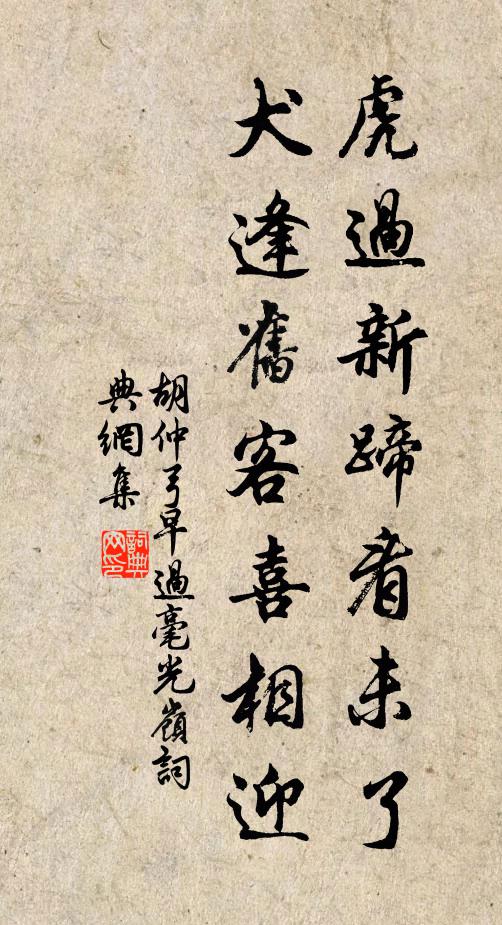 虎過新蹄看未了
犬逢舊客喜相迎
胡仲弓早過毫光嶺詞
典網集
詞典
网印